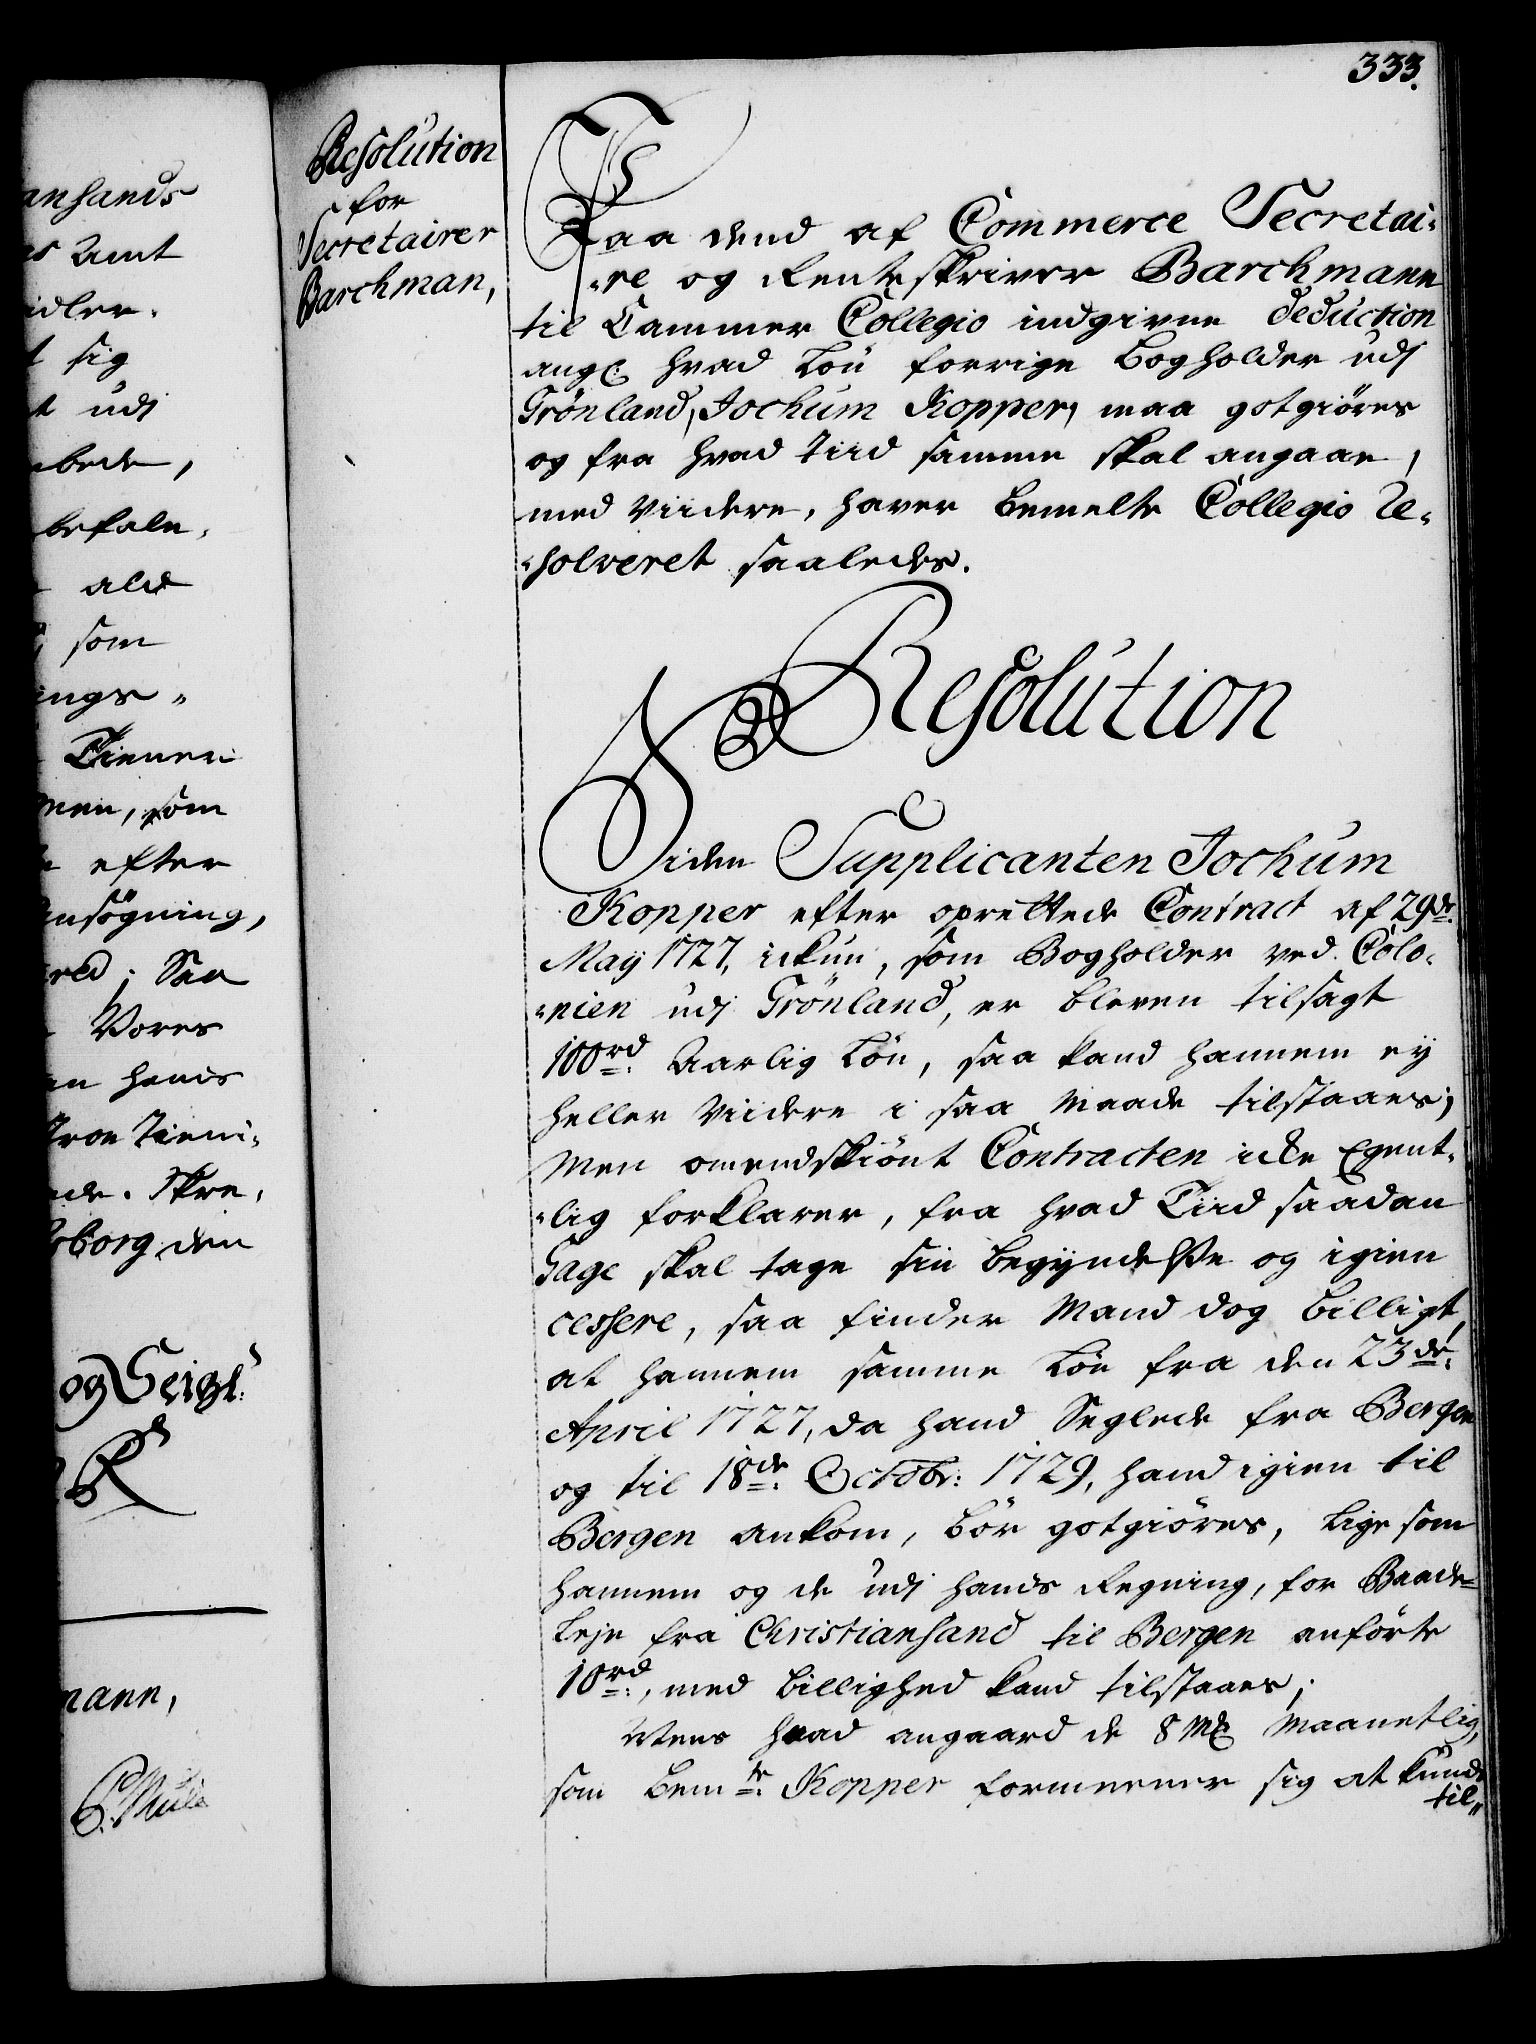 333.
Resolution
for
Secretairer
Barchman,
Paa dend af Commerce Secretai-
-re og Renteskriver Barchmann
til Cammer Collegio indgivne deduction
ang: hvad Løn forrige Bogholder udj
Grönland, Jochum Kopper, maa gotgiöres
og fra hvad Tiid samme skal angaae,
med Viidere, haver bemelte Collegio re-
-solveret saaledes.
Resolution
Siden Supplicanten Jochum
Kopper efter oprettede Contract af 29de
Maÿ 1727, ickun, som Bogholder ved Colo-
-nien udj Grönland, er bleven tilsagt
100rd Aarlig Lön, saa kand hannem eÿ
heller Viidere i saa Maade tilstaaes;
Men omendskiönt Contracten icke Egent-
-lig forklarer, fra hvad Tiid saadan
Gage skal tage sin begÿndelse og igien
cessere, saa finder Mand dog billigt,
at hannem samme Lön fra den 23de
April 1727, da hand Seglede fra Bergen
og til 18de Octobr: 1729, hand igien til
Bergen ankom, bör gotgiöres, lige som
hannem og de udj hands Regning, for Baads-
Leje fra Christiansand til Bergen anförte
10rd, med billighed kand tilstaaes;
Mens hvad angaard de 8 Mk Maanetlig,
som bemte Kopper formeener sig at kunde
til-
ansands
Amt
idler-
t sig
t udj
bede,
befale,
ald
som
ings-
Tiener
men, som
efter
ansögning,
red; Saa
Vores
en hands
troe Tieni-
ede. Skre-
borg den
og Seigl:
R
mann,